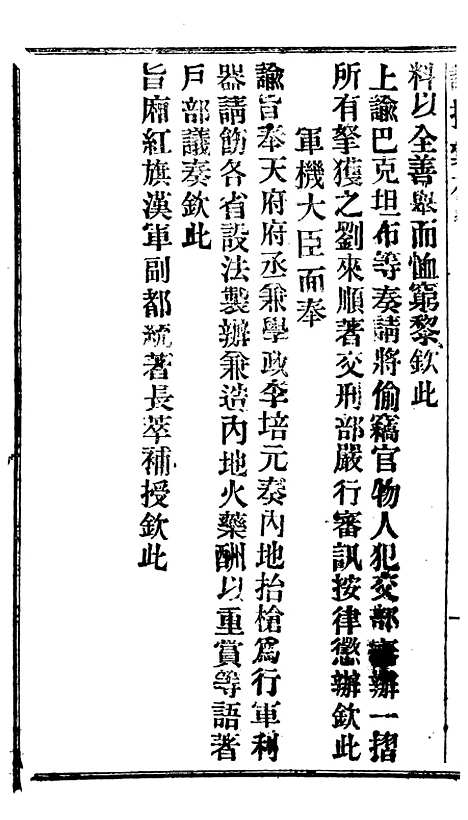 料以全善舉而恤窮黎欽此
上諭巴克坦布等奏請將偷竊官物人犯交部審辦一摺
所有拏獲之劉來順著交刑部嚴行審訊按律懲辦欽此
軍機大臣面奉
諭旨奉天府府丞兼學政李培元奏內地抬槍爲行軍利
器請飭各省設法製辦兼造內地火藥酬以重賞等語著
戶部議奏欽此
旨廂紅旗漢軍副都統著長萃補授欽此